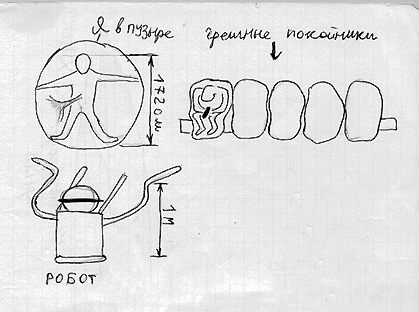 Я в пузыре
грешные покойники
1720 м
1 м
РОБОТ